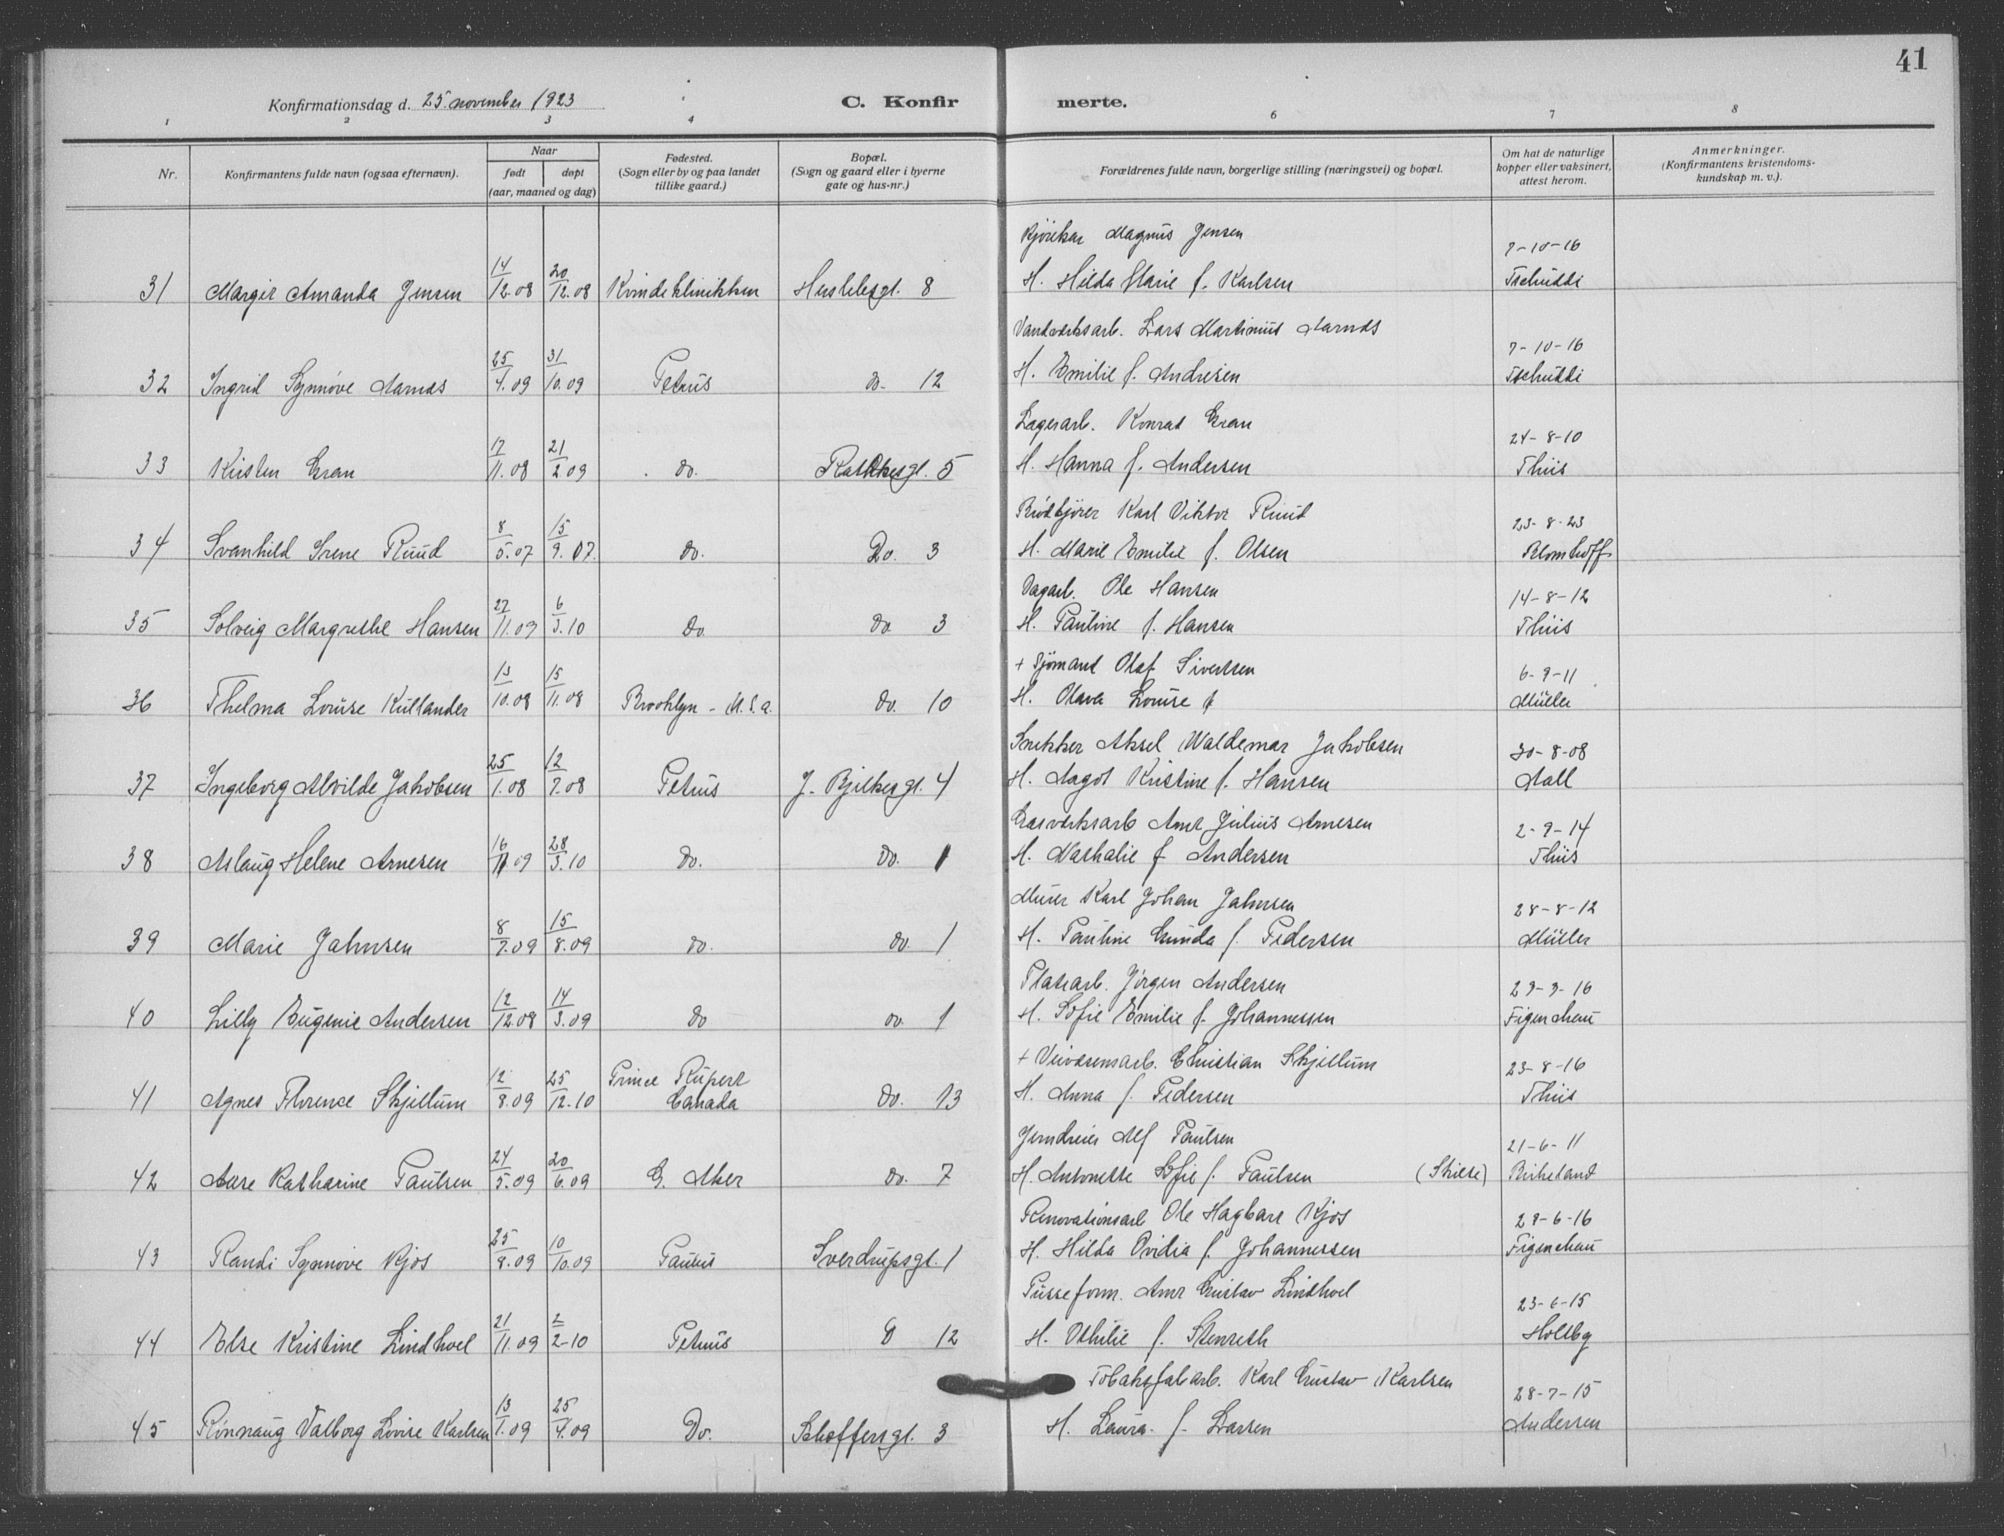 41
Konfirmationsdag d. 25. november 1923 C. Konfirmerte.
1 2 3 4 6 7 8
Nr. Konfirmantens fulde navn (ogsaa efternavn). Naar født døpt (aar, maaned og dag) Fødested. (Sogn eller by og paa landet tillike gaard.) Bopæl. (Sogn og gaard eller i byerne gate og hus-nr.) Forældrenes fulde navn, borgerlige stilling (næringsvei) og bopæl. Om hat de naturlige kopper eller vaksinert, attest herom. Anmerkninger. (Konfirmantens kristendoms-kundskap m. v.).
Kjørekar Magnus Jensen 7-10-16
31 Margit Amanda Jensen 14/12.08 20/12.08 Kvindeklinikken 8 H. Hilda Marie f. Karlsen Tschudi
Vandverksarb. Lars Martinius Aarnæs 7-10-16
32 Ingrid Synnøve Aarnæs 25/4.09 31/10.09 Petrus do. 12 H. Emilie f. Andresen Tschudi
Lagerarb. Konrad Gran 24-8-10
33 Kirsten Gran 17/11.08 21/2.09 do. Rathkesgt. 5 H. Hanna f. Andersen Thiis
Brødkjører Karl Viktor Ruud 23-8-23
34 Svanhild Irene Ruud 8/5.07 15/9.07. do. Do. 3 H. Marie Emilie f. Olsen Blomhoff
Dagarb. Ole Hansen 14-8-12
35 Solveig Margrethe Hansen 27/11.09 6/3.10 do do 3 H. Pauline f. Hansen Thiis
+ Sjømand Olaf Sivertsen 6-9-11
36 Thelma Louise Kullander 13/10.08 15/11.08 Brooklyn - U.S.a. do 10 H. Olava Louise f Müller
Snekker Aksel Waldemar Jakobsen 30-8-08
37 Ingeborg Alvilde Jakobsen 25/1.08 12/7.08 Petrus J. Bjelkesgt. 4 H. Aagot Kristine f. Hansen Aall
Gasverksarb Amt Julius Arnesen 2-9-14
38 Aslaug Helene Arnesen 16/11 09 28/3.10 do. do. 1 H. Nathalie f Andersen Thiis
Murer Karl Johan Jahnsen 28-8-12
39 Marie Jahnsen 8/7.09 15/8.09 do. do. 1 H. Pauline Gunda f. Pedersen Müller
Pladsarb. Jørgen Andersen 29-9-16
40 Lilly Eugenie Andersen 12/12.08 14/3.09 do do. 1 H. Sofie Emilie f. Johannessen Figenschau
+ Veivæsensarb. Christian Skjellum 23-8-16
41 Agnes Florence Skjellum 12/8.09 25/12.10 Prince Rupert Canada do. 13 H. Anna f. Pedersen Thiis
Jerndreier Alf Paulsen 21-6-11
42 Aase Katharine Paulsen 24/5.09 20/6.09 G. Aker do. 7 H. Antonette Sofie f. Paulsen (Skilte) Birkeland
Renovationsarb Ole Hagbart Kjøs 29-6-16
43 Randi Synnøve Kjøs 25/8.09 10/10.09 Paulus Sverdrupsgt. 1 H. Hilda Ovidia f. Johannessen Figenschau
Pusseform. Amt Gustav Lindhoel 23-6-15
44 Else Kristine Lindhoel 21/11.09 2/2-10 Petrus D 12 H. Othilie f. Stenseth Holtby
Tobaksfab.arb. Karl Gustav Karlsen 28-7-15
45 Rønnaug Valborg Lovise Karlsen 13/1.09 25/4.09 Do. 3 H. Laura f. Larsen Andersen